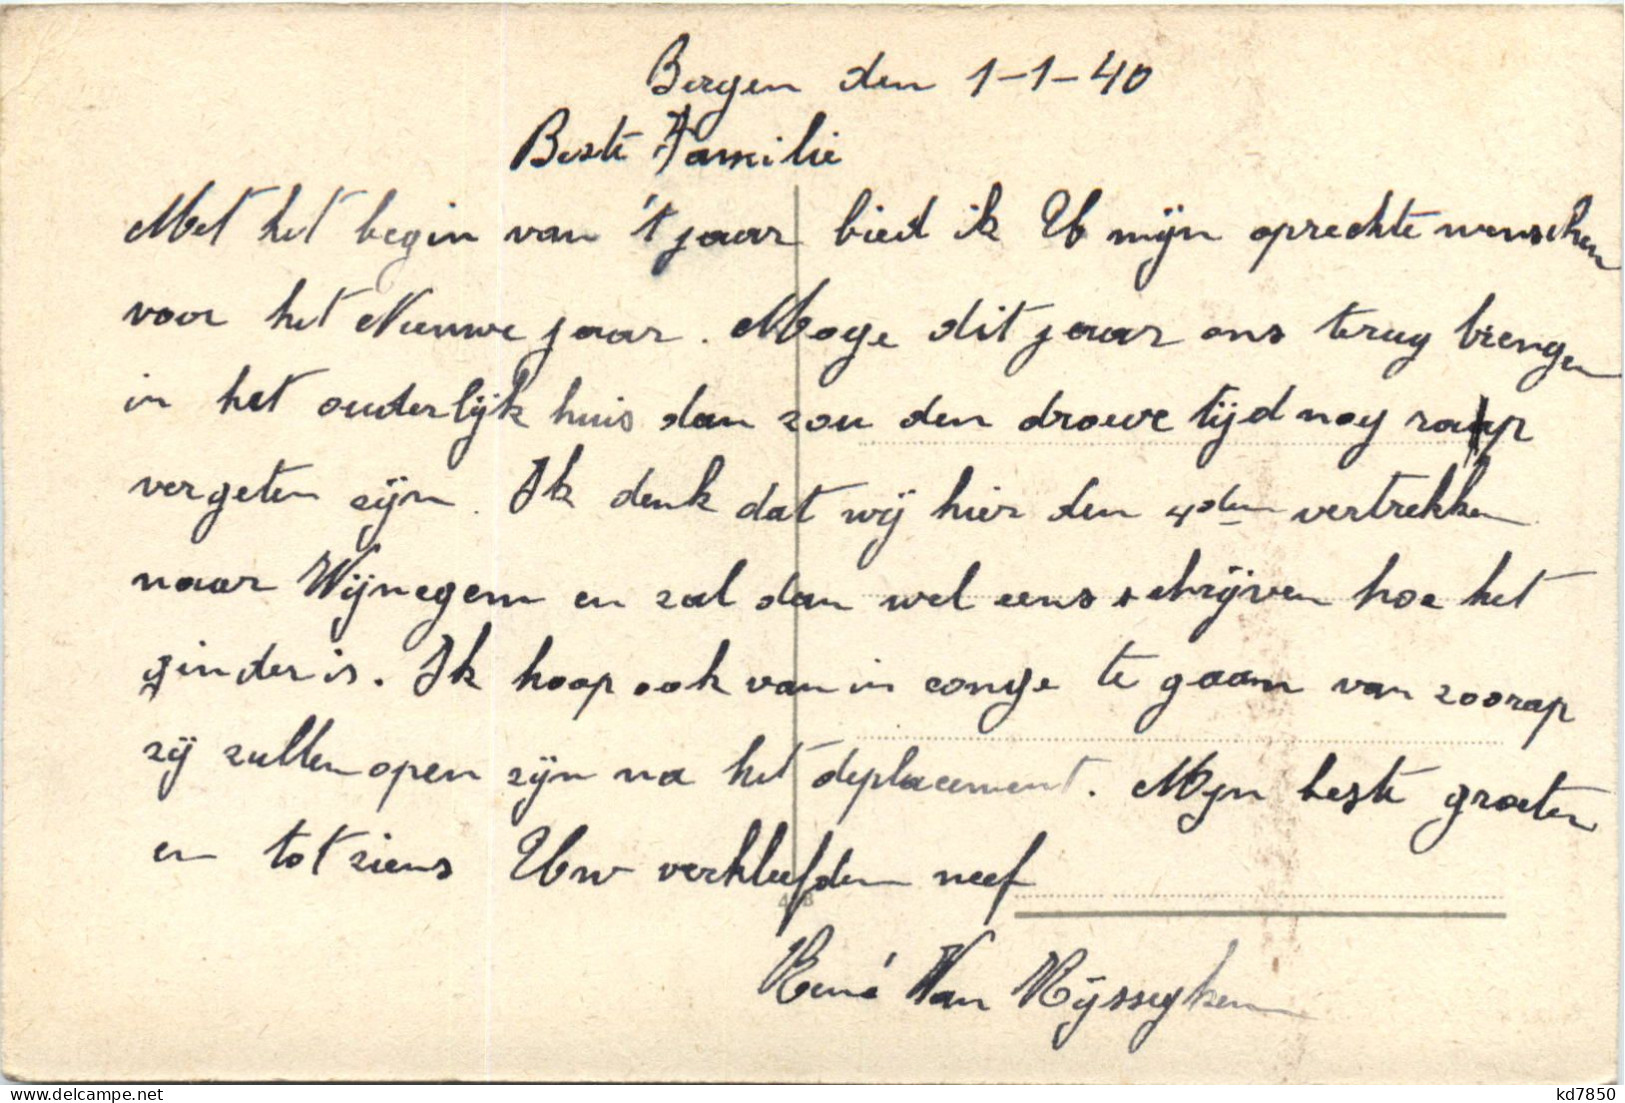 Bergen den 1-1-40
Beste Familie
Met het begin van 't jaar bied ik U mijn oprechte wenschen
voor het Nieuwe jaar. Moge dit jaar ons terug brengen
in het ouderlijk huis dan zou den droeve tijd nog rap
vergeten zijn. Ik denk dat wij hier den 4den vertrekken
naar Wijnegem en zal dan wel eens schrijven hoe het
ginder is. Ik hoop ook van in conge te gaan van zoorap
zij zullen open zijn na het deplacement. Mijn beste groeten
en tot ziens Uw verkleefden neef
478
René Van Rijsseghem
kd7850